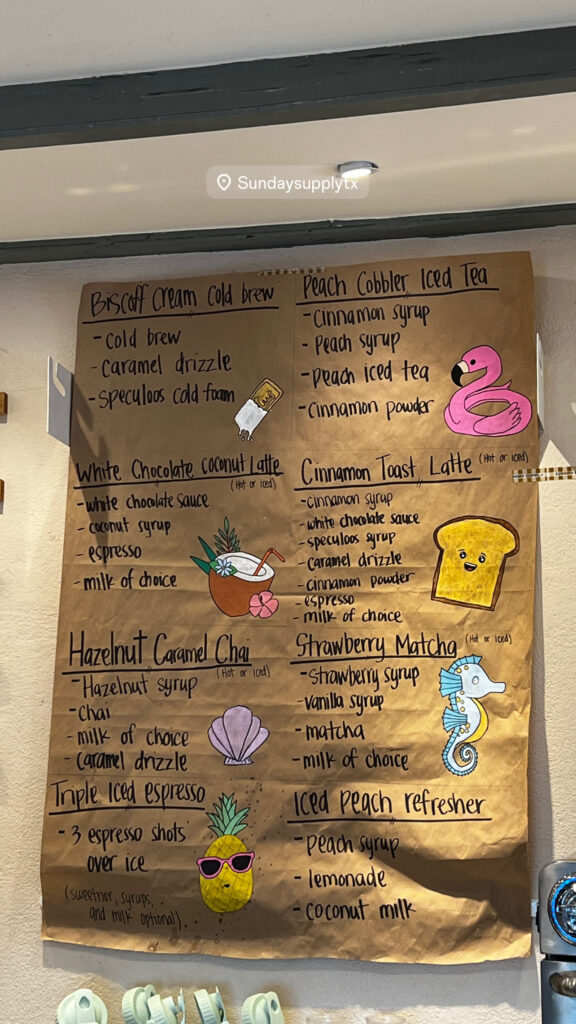 Sundaysupplytx
Biscoff Cream Cold brew
- Cold brew
- caramel drizzle
- speculoos cold foam
Peach Cobbler Iced Tea
- Cinnamon syrup
- Peach syrup
- Peach iced tea
- Cinnamon powder
White Chocolate Coconut Latte
(Hot or iced)
- white chocolate sauce
- coconut syrup
- espresso
- milk of choice
Cinnamon Toast Latte (Hot or iced)
- cinnamon syrup
- white chocolate sauce
- speculoos syrup
- caramel drizzle
- cinnamon powder
- espresso
- milk of choice
Hazelnut Caramel Chai
(Hot or iced)
- Hazelnut syrup
- chai
- milk of choice
- caramel drizzle
Strawberry Matcha (Hot or iced)
- Strawberry syrup
- vanilla syrup
- matcha
- milk of choice
Triple Iced espresso
- 3 espresso shots
over ice
(sweetner, syrups,
and milk optional)
Iced Peach refresher
- Peach syrup
- lemonade
- coconut milk